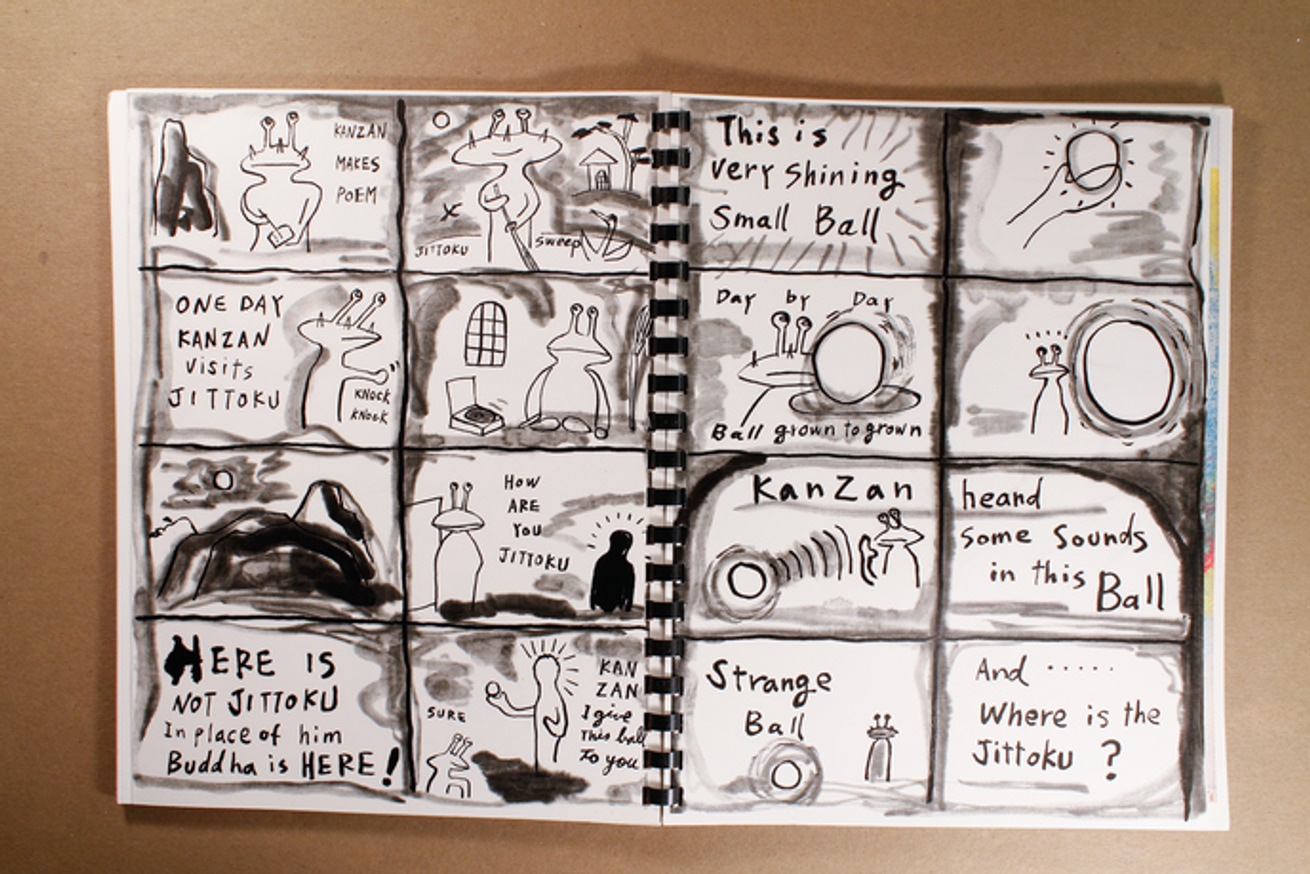 KANZAN
MAKES
POEM
JITTOKU
Sweep
ONE DAY
KANZAN
Visits
JITTOKU
KNOCK
KNOCK
HOW
ARE
YOU
JITTOKU
HERE IS
NOT JITTOKU
In place of him
Buddha is HERE!
SURE
KAN
ZAN
I give
This ball
To you
This is
Very Shining
Small Ball
Day by Day
Ball grown to grown
KanZan
heand
Some Sounds
in this Ball
Strange
Ball
And ......
Where is the
Jittoku ?